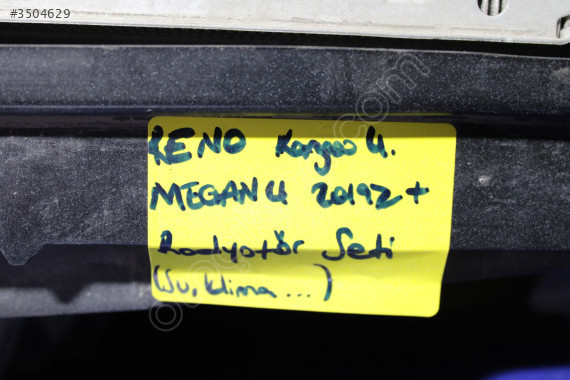 #3504629
RENO Kangoo 4.
MEGAN 4 2019Z +
Radyatör Seti
(Su, klima ...)